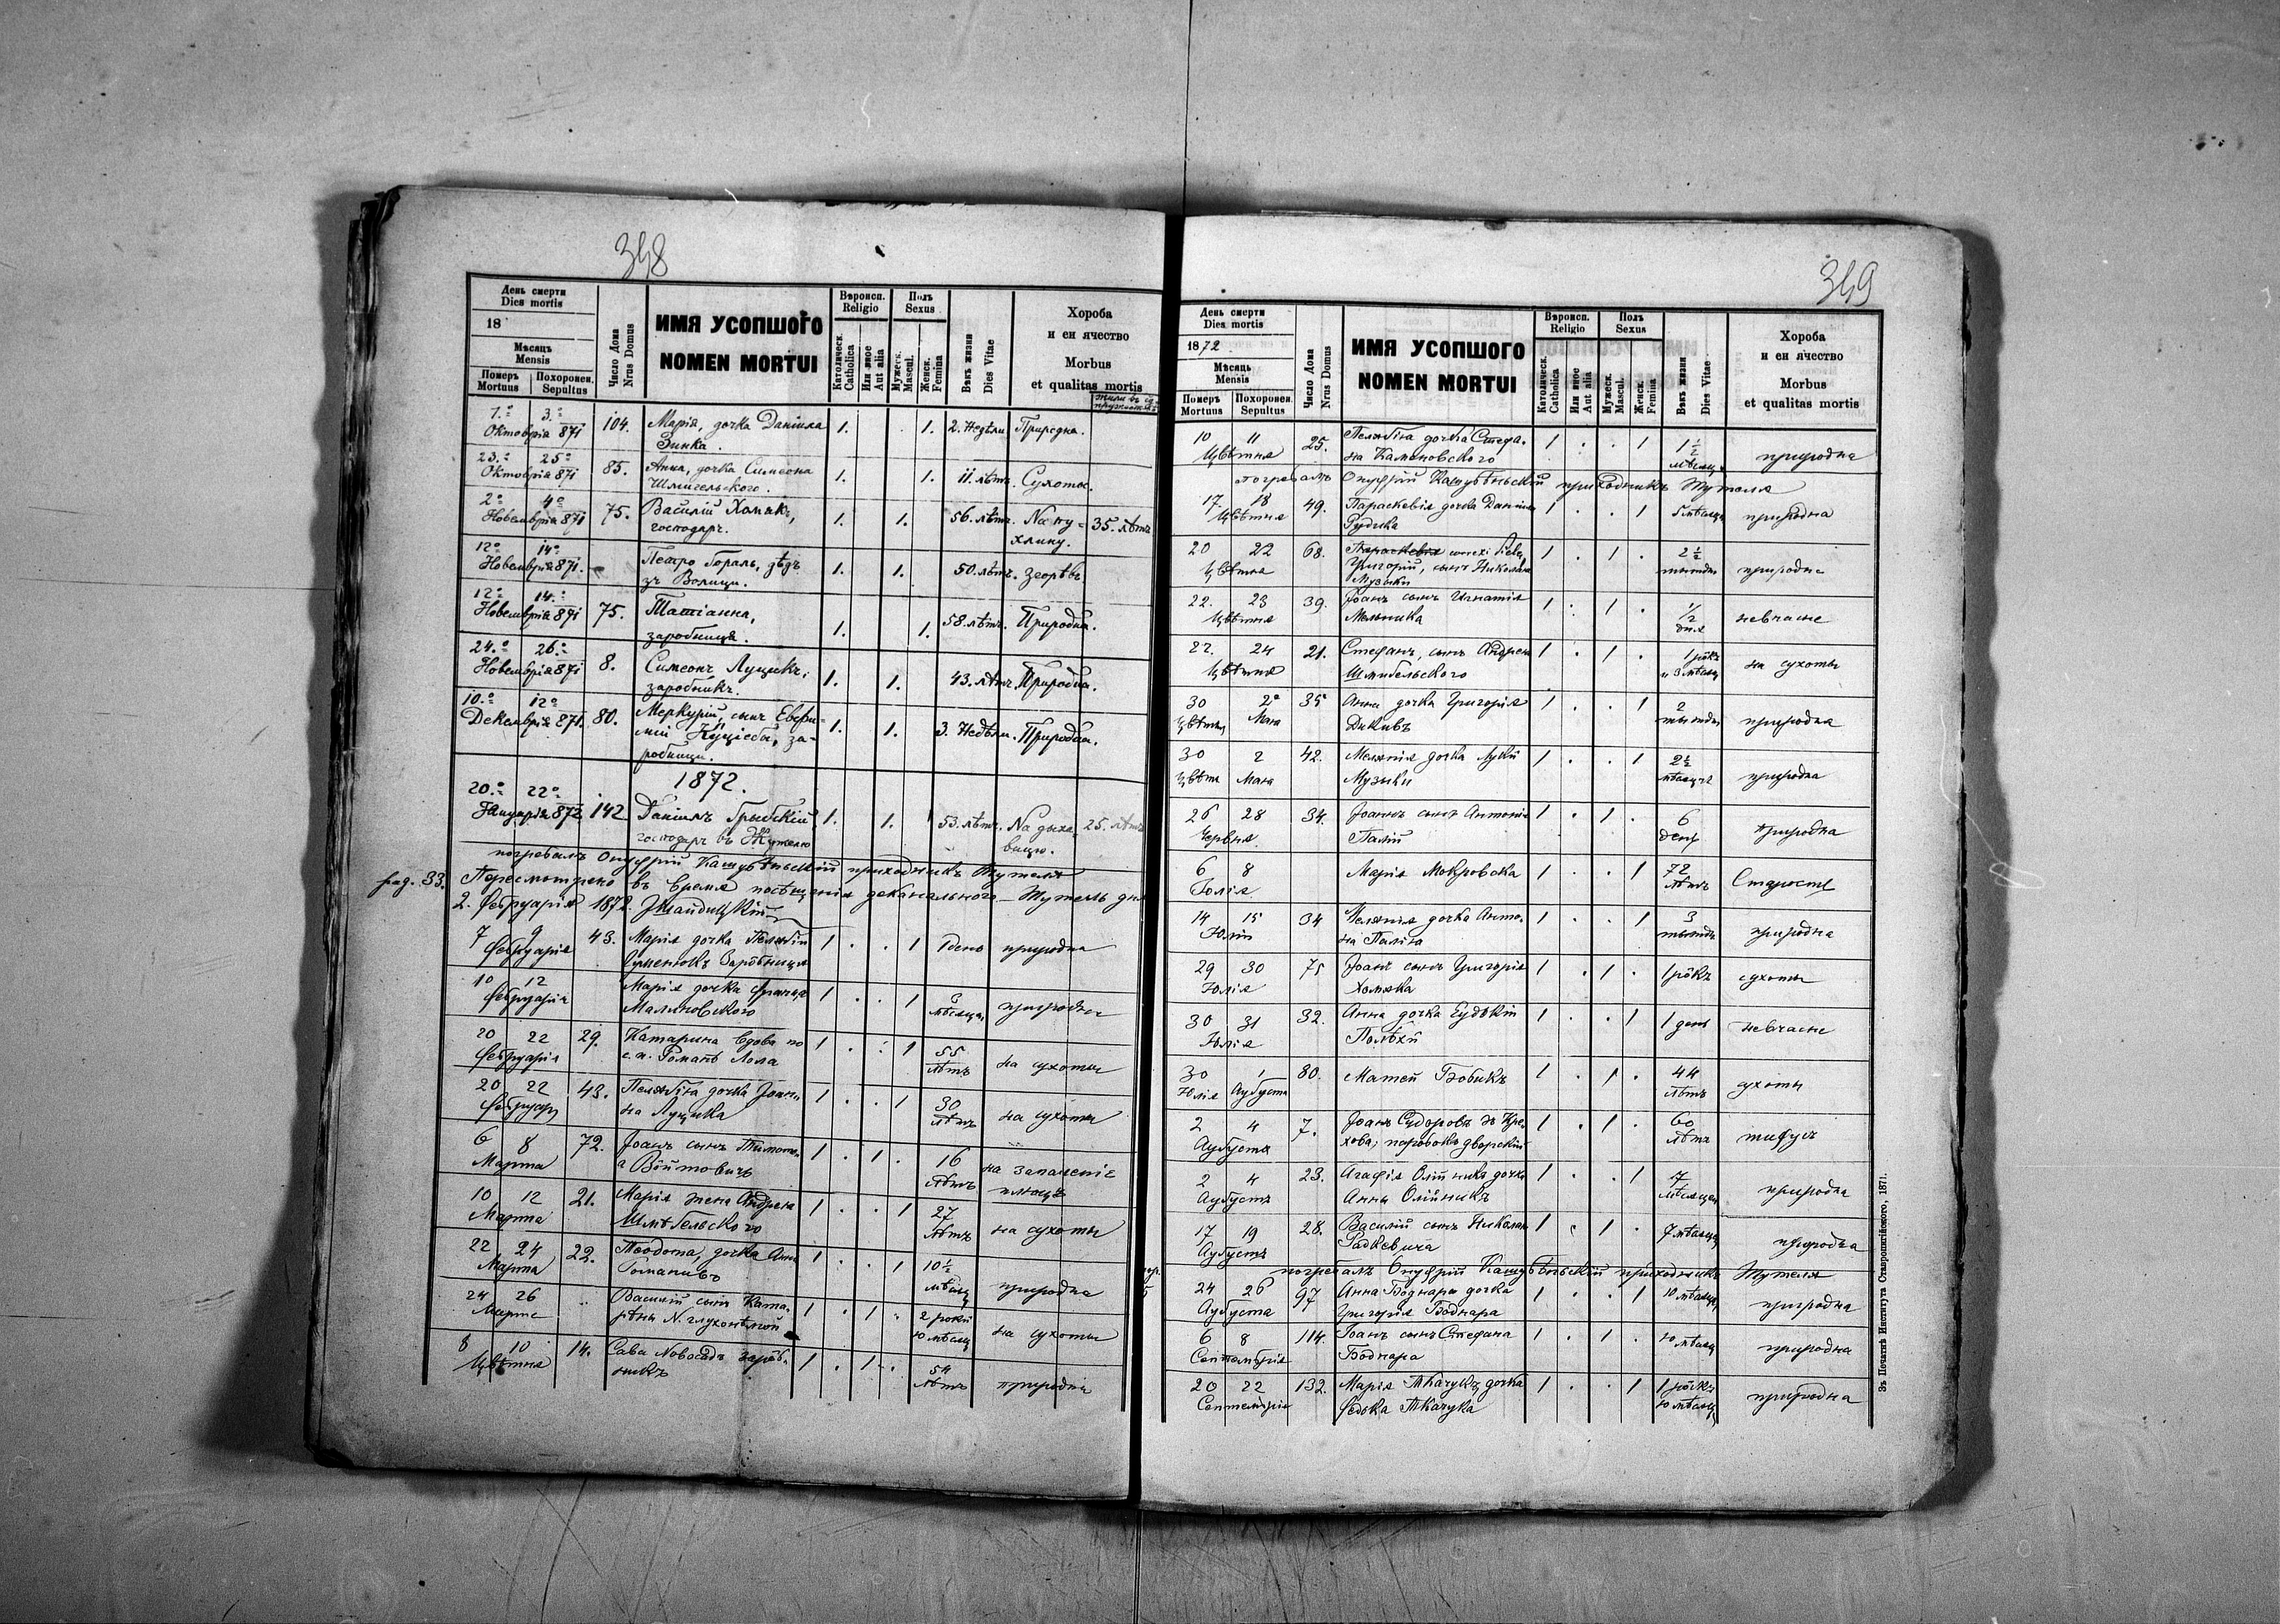 348
День смерти
Dies mortis
18
Мѣсяцъ
Mensis
Померъ Похоронен.
Mortuus Sepultus
Число Дома
Nrus Domus
ИМЯ УСОПШОГО
NOMEN MORTUI
Вѣроисп.
Religio
Католическ.
Catholica
Или иное
Aut alia
Полъ
Sexus
Мужеск.
Mascul.
Женск.
Femina
Вѣкъ жизни
Dies Vitae
Хороба
и еи ячество
Morbus
et qualitas mortis
1.º 3.º 104. Марія, дочка Даніила 1. 1. 2. Недѣли Природна.
Октобрія 871 Зинка.
23.º 25º 85. Анна, дочка Симеона 1. 1. 11. лѣтъ. Сухоты.
Октобрія 871 Шмигельского.
2º 4º 75. Василій Хомякъ, 1. 1. 56. лѣтъ. На пу- 35. лѣтъ
Новембрія 871 господарь. хлину.
12º 14º Петро Гораль, зъ 1. 1. 50. лѣтъ. згорѣвъ
Новембрія 871. Волици.
12º 14.º 75. Татіанна, 1. 1. 58. лѣтъ. Природна.
Новембрія 871 заробница.
24.º 26.º 8. Симеонъ Луцикъ, 1. 1. 43. лѣтъ. Природна.
Новембрія 871 заробникъ.
10.º 12º 80. Меркурій, сынъ Евфи- 1. 1. 3. Недѣли. Природна.
Декембрія 871. міи за-
робници.
1872.
20.º 22º 142 Даніилъ Грыбскій 1. 1. 53. лѣтъ. На дыха- 25. лѣтъ
Януарія 872 господарь въ Жужелю вицю.
погребалъ Онуфрій приходникъ Жужеля
pag. 33. Пересмотрено въ время посѣщенія деканального — Жужель дня
2. Фебруарія 1872.
7 9 43. Марія дочка Пелагіи 1 . . 1 1 день природна
Фебруарія заробници
10 12 Марія дочка Франца 1 . . 1 3 природна
Фебруарія Малиновского мѣсяца
20 22 29. Катарина вдова по 1 . . 1 55 на сухоты
Фебруарія с. п. Романѣ лѣтъ
20 22 43. Пелагія дочка Іоан- 1 . . 1 30 на сухоты
Фебруарія на Луцика лѣтъ
6 8 72. Іоанъ сынъ Тимоте- 1 . 1 . 16 на запаленіе
Марта а Войтовичъ лѣтъ плюцъ
10 12 21. Марія жена Андрея 1 . . 1 27 на сухоты
Марта Шмигельского лѣтъ
22 24 22. Теодота, дочка Анны 1 . . 1 10½ природна
Марта Романивъ мѣсяц
24 26 Василій сынъ Ката- 1 . 1 . 2 роки на сухоты
Марта рины N. глухонѣмой 10 мѣсяц
8 10 14. Сава Новосадъ зароб- 1 . 1 . 54 природна
Цвѣтня никъ лѣтъ
349
День смерти
Dies mortis
1872
Мѣсяцъ
Mensis
Померъ Похоронен.
Mortuus Sepultus
Число Дома
Nrus Domus
ИМЯ УСОПШОГО
NOMEN MORTUI
Вѣроисп.
Religio
Католическ.
Catholica
Или иное
Aut alia
Полъ
Sexus
Мужеск.
Mascul.
Женск.
Femina
Вѣкъ жизни
Dies Vitae
Хороба
и еи ячество
Morbus
et qualitas mortis
10 11 25. Пелагія дочка Стефа- 1 . . 1 1½ природна
Цвѣтня на Калиновского мѣсяц
погребалъ Онуфрій приходникъ Жужеля
17 18 49. Параскевія дочка Даниила 1 . . 1 5 мѣсяц природна
Цвѣтня
20 22 68. Параскевія correxi 1 . 1 . 2½ природна
Цвѣтня Григорій, сынъ Николая тыждня
Музыки
22. 23 39. Іоанъ сынъ Игнатія 1 . 1 . ½ невчасне
Цвѣтня Мельника дня
22. 24 21. Стефанъ, сынъ Андрея 1 . 1 . 1 рôкъ на сухоты
Цвѣтня Шмигельского и 3 мѣсяц
30 2º 35 Анна дочка Григорія 1 . . 1 2 природна
Цвѣтня Мая Дикивъ тыждни
30 2 42. Меланія дочка Луки 1 . . 1 2½ природна
Цвѣтня Мая Музыки мѣсяца
26 28 34. Іоанъ сынъ Антонія 1 . 1 . 6 природна
Червня Палій день
6 8 Марія Мокровска 1 . . 1 72 Старость
Юлія лѣтъ
14 15 34 Меланія дочка Анто- 1 . . 1 3 природна
Юлія на Палія тыждн
29 30 75 Іоанъ сынъ Григорія 1 . 1 . 1 рôкъ сухоты
Юлія Хомяка
30 31 32. Анна дочка Евдокіи 1 . . 1 1 день невчасне
Юлія
30 1 80. Матей Бобикъ 1 . 1 . 44 сухоты
Юлія Аугуста лѣтъ
2 4 7. Іоанъ Судоровъ зъ Кре- 1 . 1 . 60 тифусъ
Аугуста хова, паробокъ дворскій лѣтъ
2 4 23. Агафія Олійникъ дочка 1 . . 1 7 природна
Аугуста Анны Олійникъ мѣсяцей
17 19 28. Василій сынъ Николая 1 . 1 . 7 мѣсяцей природна
Аугуста Радкевича
погребалъ Онуфрій приходникъ Жужеля
24 26 97 Анна Боднаръ дочка 1 . . 1 10 мѣсяц природна
Аугуста Григорія Боднара
6 8 114. Іоанъ сынъ Стефана 1 . 1 . 10 мѣсяц природна
Септембрія Боднара
20 22 132. Марія Ткачукъ дочка 1 . . 1 1 рôкъ природна
Септембрія Федька Ткачука 10 мѣсяц
Зъ Печатнѣ Института Ставропигійского, 1871.